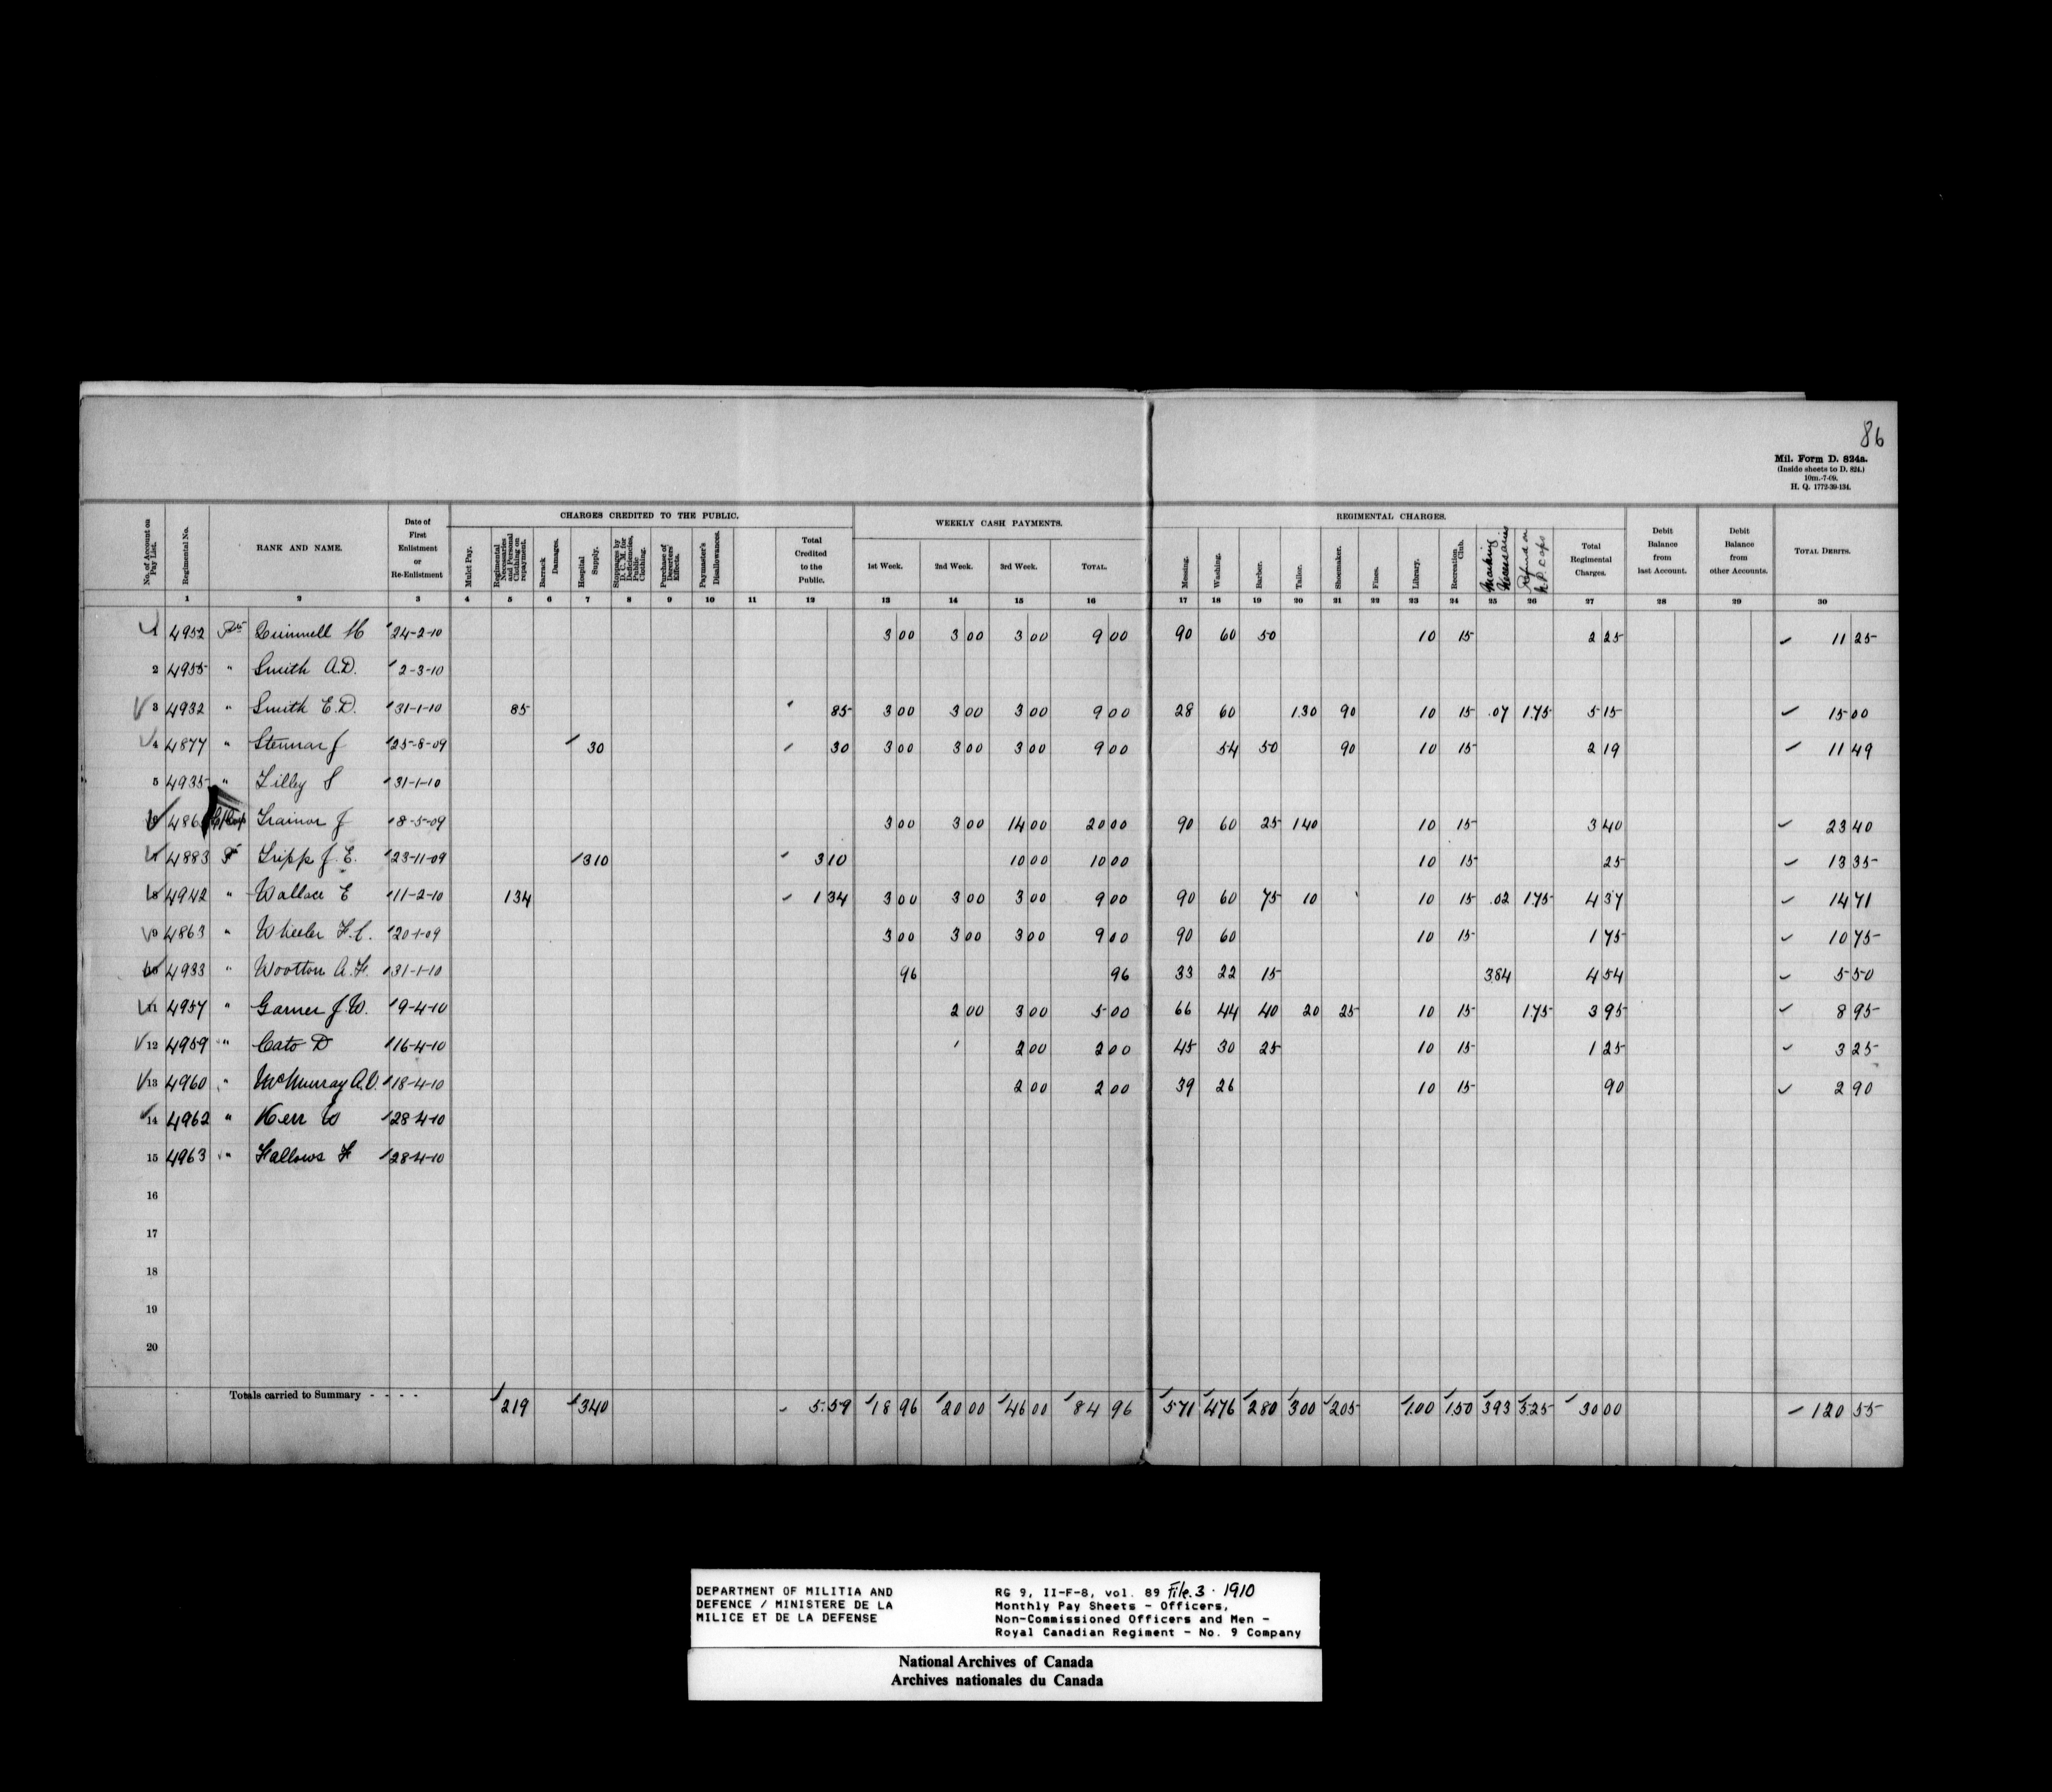 86
Mil. Form D. 824a.
(Inside sheets to D. 824.)
10m.-7-09.
H. Q. 1772-39-134.
CHARGES CREDITED TO THE PUBLIC. WEEKLY CASH PAYMENTS. REGIMENTAL CHARGES.
No. of Account on Pay List. Regimental No. RANK AND NAME. Date of First Enlistment or Re-Enlistment Mulct Pay. Regimental Necessaries and Personal Clothing on repayment. Barrack Damages. Hospital Supply. Stoppages by D. C. M. for Deficiencies, Public Clothing. Purchase of Deserters' Effects. Paymaster's Disallowances. Total Credited to the Public. 1st Week. 2nd Week. 3rd Week. TOTAL. Messing. Washing. Barber. Tailor. Shoemaker. Fines. Library. Recreation Club. Marking Necessaries Refund on Caps Total Regimental Charges. Debit Balance from last Account. Debit Balance from other Accounts. TOTAL DEBITS.
1 2 3 4 5 6 7 8 9 10 11 12 13 14 15 16 17 18 19 20 21 22 23 24 25 26 27 28 29 30
1 4952 Pte 24-2-10 3 00 3 00 3 00 9 00 90 60 50 10 15 2 25 11 25
2 4955 " Smith A.D. 2-3-10
3 4932 " Smith E.D. 31-1-10 85 85 3 00 3 00 3 00 9 00 28 60 1.30 90 10 15 .07 1.75 5 15 15 00
4 4877 " Stennar J 25-8-09 30 30 3 00 3 00 3 00 9 00 54 50 90 10 15 2 19 11 49
5 4935 " Lilley S 31-1-10
6 Trainor J 8-5-09 3 00 3 00 14 00 20 00 90 60 25 1 40 10 15 3 40 23 40
7 4883 P Tripp J.E. 23-11-09 3 10 3 10 10 00 10 00 10 15 25 13 35
8 4942 " Wallace E 11-2-10 1 34 1 34 3 00 3 00 3 00 9 00 90 60 75 10 10 15 .02 1.75 4 37 14 71
9 4863 " Wheeler F.C. 20-1-09 3 00 3 00 3 00 9 00 90 60 10 15 1 75 10 75
10 4933 " Wootton A.F. 31-1-10 96 96 33 22 15 3.84 4 54 5 50
11 4957 " Garner J.W. 9-4-10 2 00 3 00 5 00 66 44 40 20 25 10 15 1.75 3 95 8 95
12 4959 " Cato D 16-4-10 2 00 2 00 45 30 25 10 15 1 25 3 25
13 4960 " McMurray A.O. 18-4-10 2 00 2 00 39 26 10 15 90 2 90
14 4962 " Kerr W 28-4-10
15 4963 " Fallows F 28-4-10
16
17
18
19
20
Totals carried to Summary - - - - 2 19 3 40 5.59 18 96 20 00 46 00 84 96 5 71 4 76 2 80 3 00 2 05 1.00 1.50 3 93 5.25 30 00 120 55
DEPARTMENT OF MILITIA AND
DEFENCE / MINISTERE DE LA
MILICE ET DE LA DEFENSE
RG 9, II-F-8, vol. 89 File. 3 · 1910
Monthly Pay Sheets - Officers,
Non-Commissioned Officers and Men -
Royal Canadian Regiment - No. 9 Company
National Archives of Canada
Archives nationales du Canada